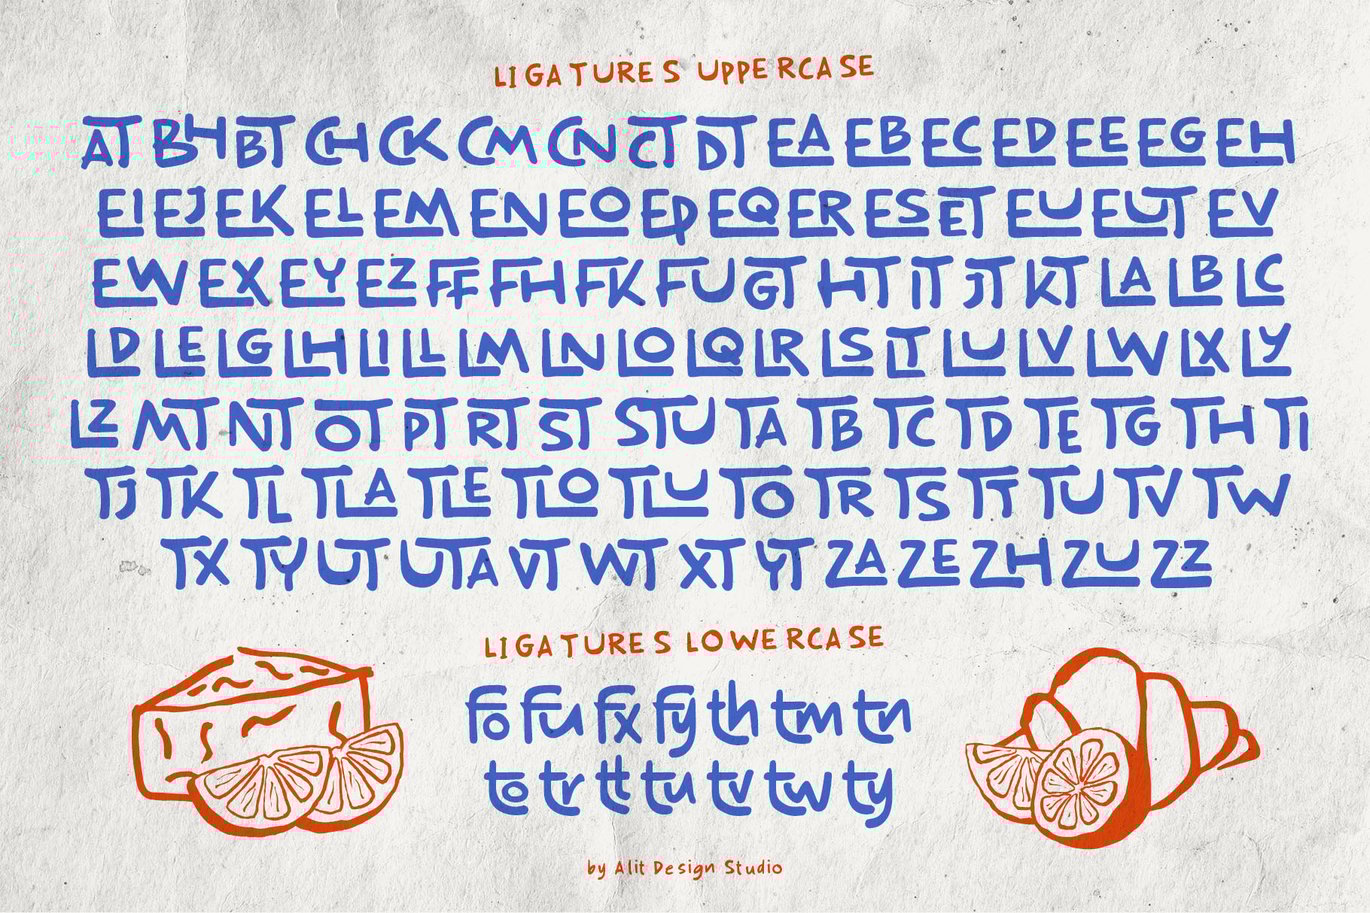 LIGATURES UPPERCASE
AT BH BT CH CK CM CN CT DT EA EB EC ED EE EG EH
EI EJ EK EL EM EN EO EP EQ ER ES ET EU EUT EV
EW EX EY EZ FF FH FK FU GT HT IT JT KT LA LB LC
LD LE LG LH LI LL LM LN LO LQ LR LS LT LU LV LW LX LY
LZ MT NT OT PT RT ST STU TA TB TC TD TE TG TH TI
TJ TK TL TLA TLE TLO TLU TO TR TS TT TU TV TW
TX TY UT UTA VT WT XT YT ZA ZE ZH ZU ZZ
LIGATURES LOWERCASE
fo fu fx fy th tm tn
to tr tt tu tv tw ty
by Alit Design Studio